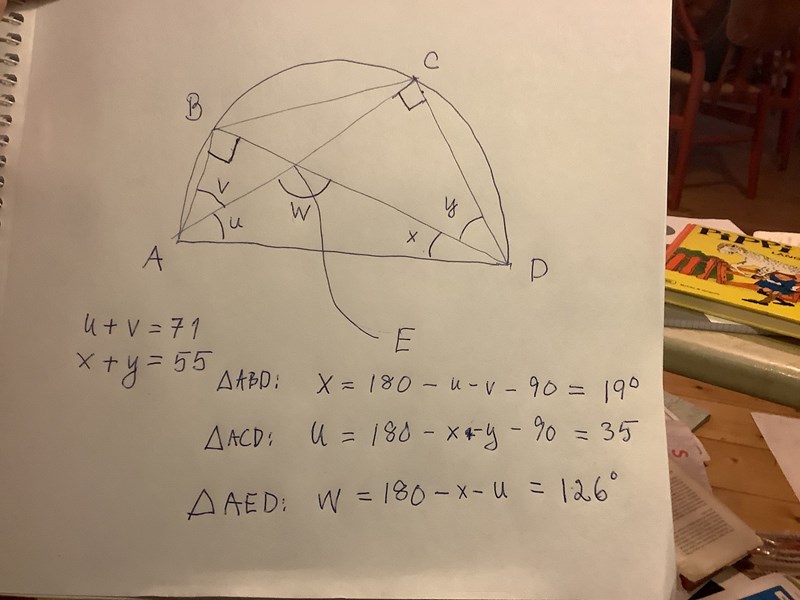 C
B
V
u
W
y
x
A
D
E
u + v = 71
x + y = 55
△ABD: X = 180 - u - v - 90 = 19°
△ACD: U = 180 - x - y - 90 = 35
△AED: W = 180 - x - u = 126°
PiPPi
LANG
5